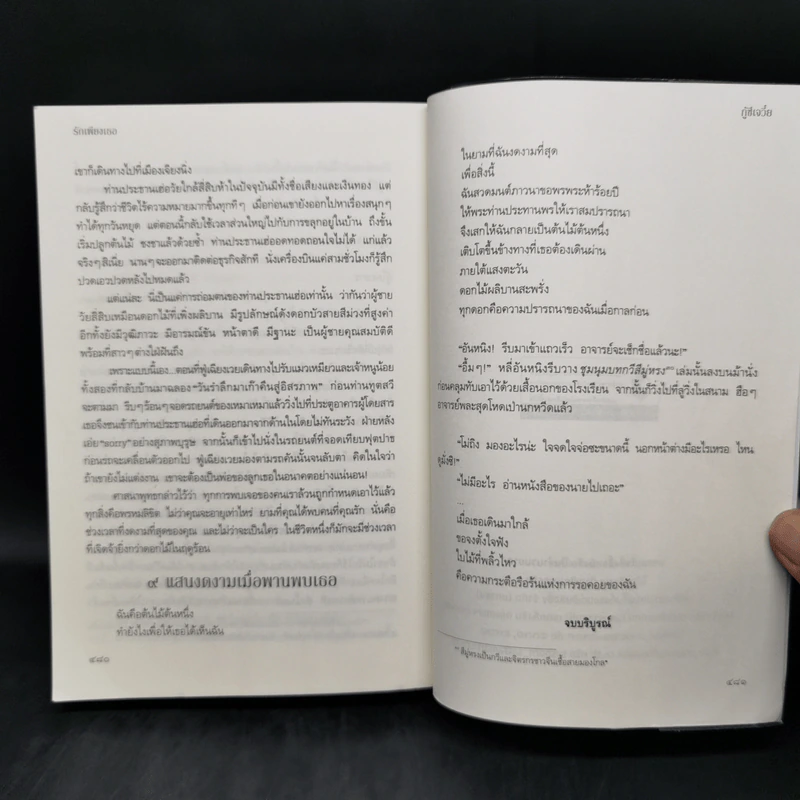 รักเพียงเธอ
เขาก็เดินทางไปที่เมืองเจียงนิ่ง
ท่านประธานเฮ่อวัยใกล้สี่สิบห้าในปัจจุบันมีทั้งชื่อเสียงและเงินทอง แต่
กลับรู้สึกว่าชีวิตไร้ความหมายมากขึ้นทุกทีๆ เมื่อก่อนเขายังออกไปหาเรื่องสนุกๆ
ทำได้ทุกวันหยุด แต่ตอนนี้กลับใช้เวลาส่วนใหญ่ไปกับการขลุกอยู่ในบ้าน ถึงขั้น
เริ่มปลูกต้นไม้ ชงชาแล้วด้วยซ้ำ ท่านประธานเฮ่ออดทอดถอนใจไม่ได้ แก่แล้ว
จริงๆ สิเนี่ย นานๆ จะออกมาติดต่อธุรกิจสักที นั่งเครื่องบินแค่สามชั่วโมงก็รู้สึก
ปวดเอวปวดหลังไปหมดแล้ว
แต่แน่ละ นี่เป็นแค่การถ่อมตนของท่านประธานเฮ่อเท่านั้น ว่ากันว่าผู้ชาย
วัยสี่สิบเหมือนดอกไม้ที่เพิ่งผลิบาน มีรูปลักษณ์ดังดอกบัวสายสีม่วงที่สูงค่า
อีกทั้งยังมีวุฒิภาวะ มีอารมณ์ขัน หน้าตาดี มีฐานะ เป็นผู้ชายคุณสมบัติดี
พร้อมที่สาวๆ ต่างใฝ่ฝันถึง
เพราะแบบนี้เอง...ตอนที่ฟู่เฉียงเวยเดินทางไปรับแมวเหมียวและเจ้าหนูน้อย
ทั้งสองที่กลับบ้านมาฉลอง “วันรำลึกมาเก๊าคืนสู่อิสรภาพ” ก่อนท่านทูตสวี
จะตามมา รีบๆ ร้อนๆ จอดรถยนต์ของเหมาเหมาแล้ววิ่งไปที่ประตูอาคารผู้โดยสาร
เธอจึงชนเข้ากับท่านประธานเฮ่อที่เดินออกมาจากด้านในโดยไม่ทันระวัง ฝ่ายหลัง
เอ่ย “sorry” อย่างสุภาพบุรุษ จากนั้นก็เข้าไปนั่งในรถยนต์ที่จอดเทียบฟุตปาธ
ก่อนรถจะเคลื่อนตัวออกไป ฟู่เฉียงเวยมองตามรถคันนั้นจนลับตา คิดในใจว่า
ถ้าเขายังไม่แต่งงาน เขาจะต้องเป็นพ่อของลูกเธอในอนาคตอย่างแน่นอน!
ศาสนาพุทธกล่าวไว้ว่า ทุกการพบเจอของคนเราล้วนถูกกำหนดเอาไว้แล้ว
ทุกสิ่งคือพรหมลิขิต ไม่ว่าคุณจะอายุเท่าไหร่ ยามที่คุณได้พบคนที่คุณรัก นั่นคือ
ช่วงเวลาที่งดงามที่สุดของคุณ และไม่ว่าจะเป็นใคร ในชีวิตหนึ่งก็มักจะมีช่วงเวลา
ที่เจิดจ้ายิ่งกว่าดอกไม้ในฤดูร้อน
๙ แสนงดงามเมื่อพานพบเธอ
ฉันคือต้นไม้ต้นหนึ่ง
ทำยังไงเพื่อให้เธอได้เห็นฉัน
๔๘๐
กู้ซีเจวี๋ย
ในยามที่ฉันงดงามที่สุด
เพื่อสิ่งนี้
ฉันสวดมนต์ภาวนาขอพรพระห้าร้อยปี
ให้พระท่านประทานพรให้เราสมปรารถนา
จึงเสกให้ฉันกลายเป็นต้นไม้ต้นหนึ่ง
เติบโตขึ้นข้างทางที่เธอต้องเดินผ่าน
ภายใต้แสงตะวัน
ดอกไม้ผลิบานสะพรั่ง
ทุกดอกคือความปรารถนาของฉันเมื่อกาลก่อน
“อันหนิง! รีบมาเข้าแถวเร็ว อาจารย์จะเช็กชื่อแล้วนะ!”
“อื้มๆ!” หลี่อันหนิงรีบวาง ชุมนุมบทกวีสีมู่หรง เล่มนั้นลงบนม้านั่ง
ก่อนคลุมทับเอาไว้ด้วยเสื้อนอกของโรงเรียน จากนั้นก็วิ่งไปที่ลู่วิ่งในสนาม ฮือๆ
อาจารย์พละสุดโหดเป่านกหวีดแล้ว
“โม่ถิง มองอะไรน่ะ ใจจดใจจ่อซะขนาดนี้ นอกหน้าต่างมีอะไรเหรอ ไหน
ดูมั่งซิ!”
“ไม่มีอะไร อ่านหนังสือของนายไปเถอะ”
...
เมื่อเธอเดินมาใกล้
ขอจงตั้งใจฟัง
ใบไม้ที่พลิ้วไหว
คือความกระตือรือร้นแห่งการรอคอยของฉัน
จบบริบูรณ์
สีมู่หรงเป็นกวีและจิตรกรชาวจีนเชื้อสายมองโกล
๔๘๑